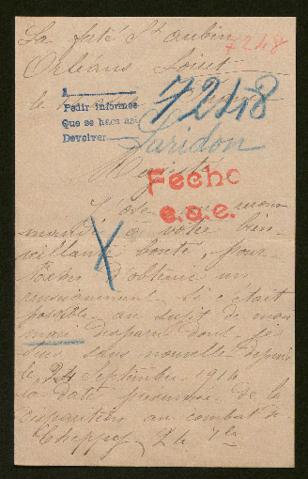 La ferté St aubin
7248
Orléans Loiret
le
A
Pedir informes
Que se haga así
Devolver
7248
Laridon
Fecho
e.s.e.
votre bien
veillante bonté, pour
d'obtenir un
renseignement. Si c'était
possible au sujet de mon
mari disparu dont je
suis sans nouvelle depuis
le 24 Septembre 1914
la date présumée de la
disparition au combat de
Cheppy. 24 7bre